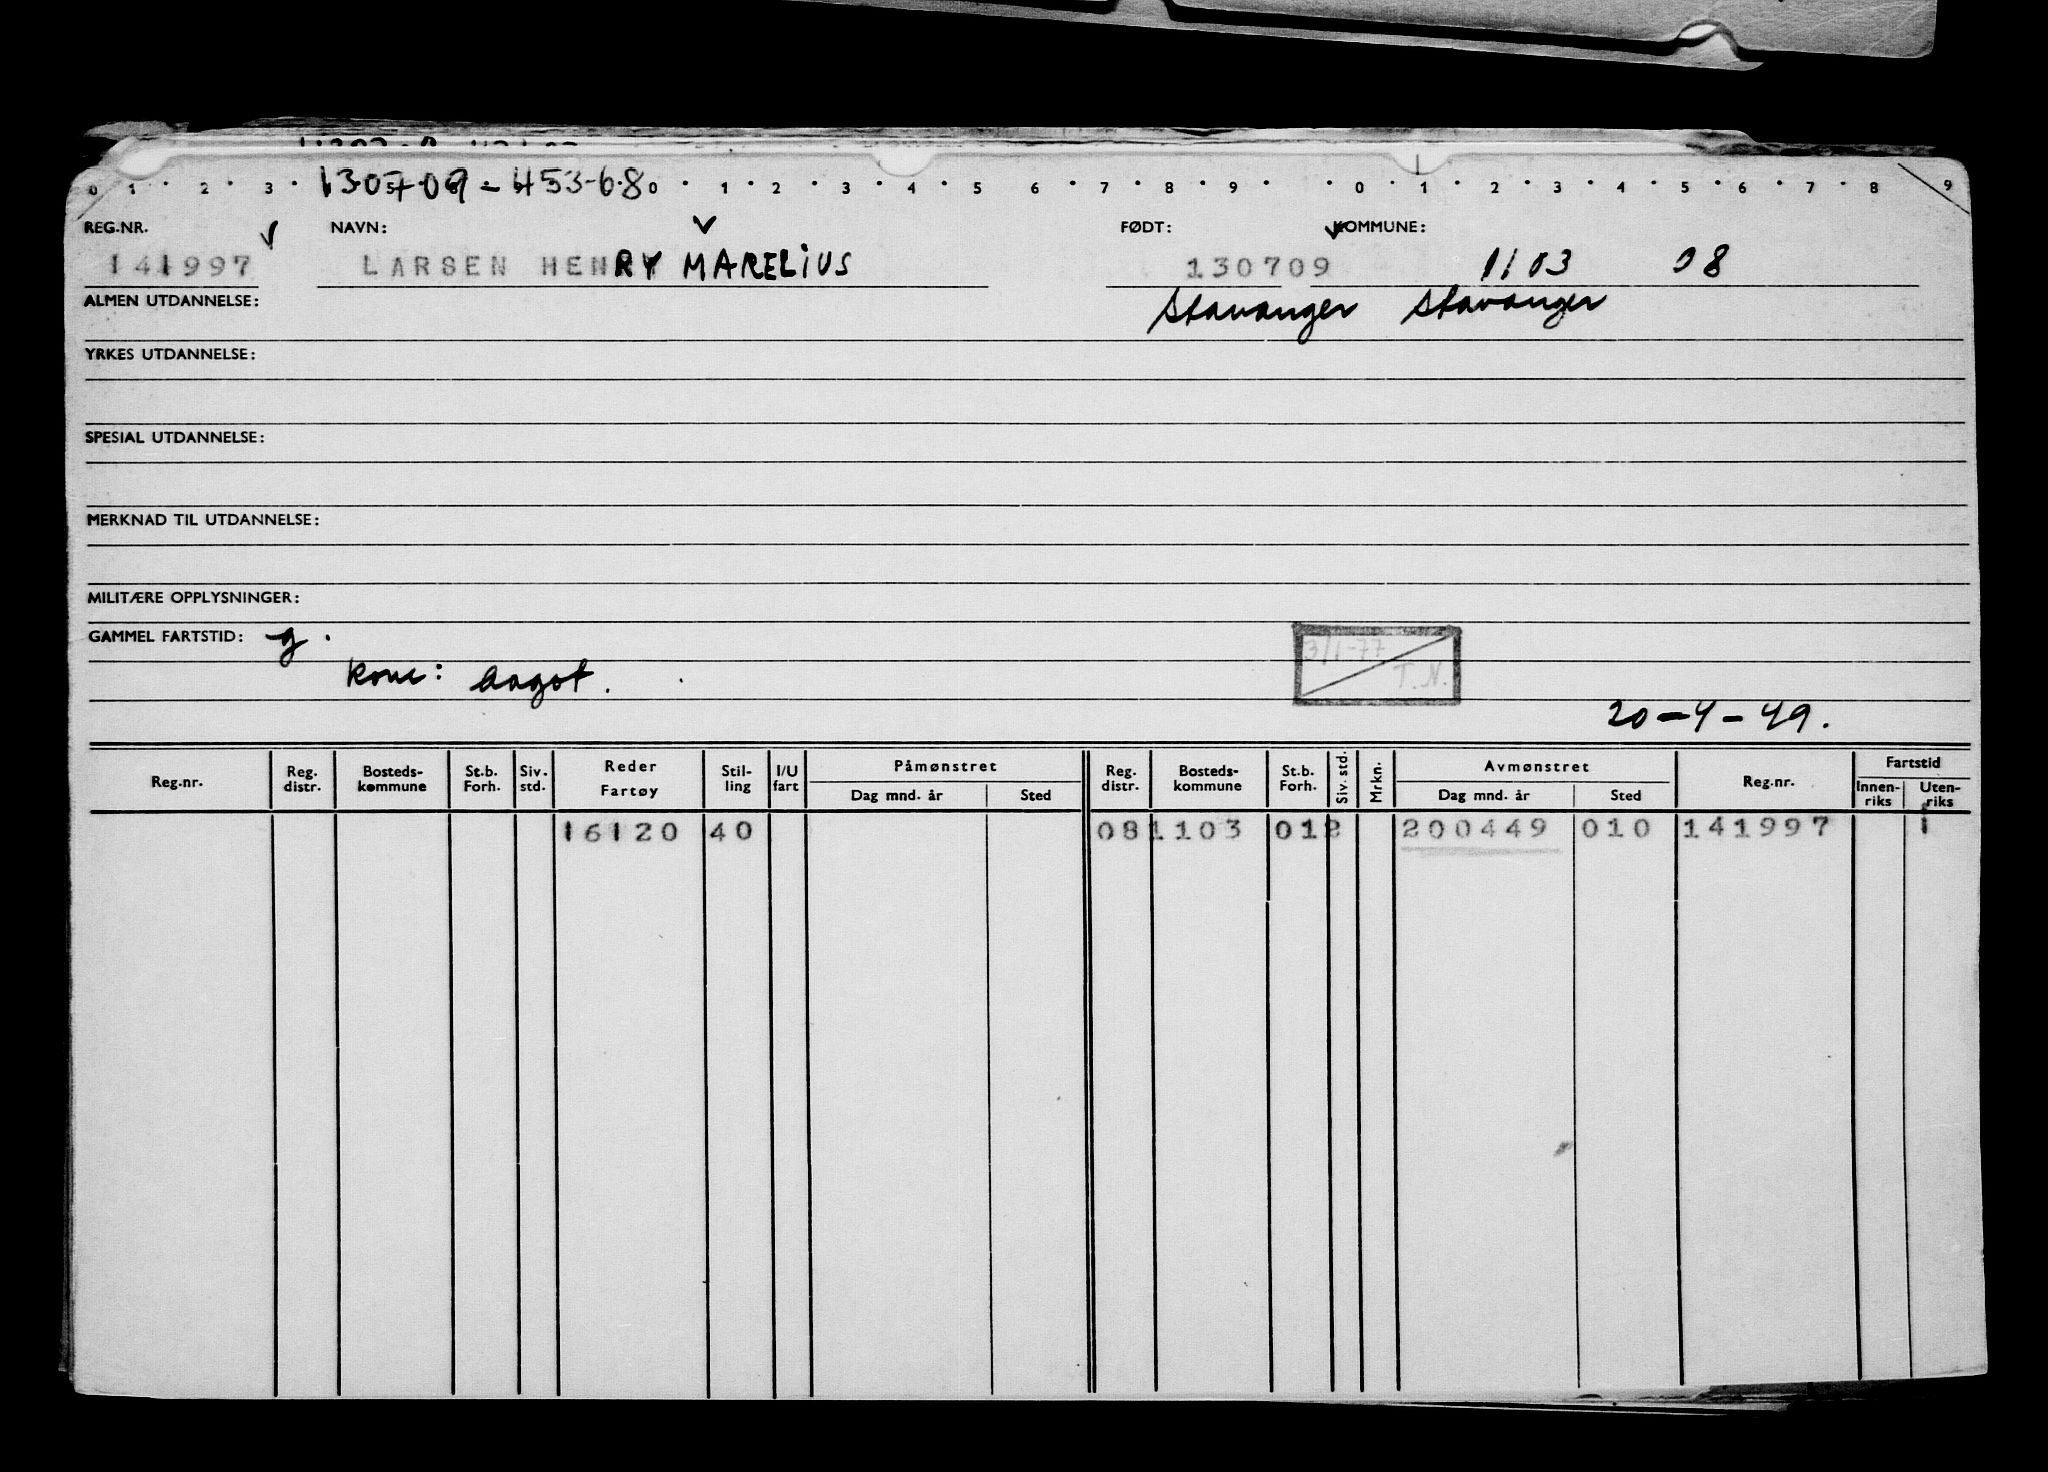 0 1 2 3 130709-453-68 0 1 2 3 4 5 6 7 8 9 0 1 2 3 4 5 6 7 8 9
REG.NR. NAVN: FØDT: KOMMUNE:
141997 LARSEN HENRY MARELIUS 130709 1103 08
ALMEN UTDANNELSE: Stavanger Stavanger
YRKES UTDANNELSE:
SPESIAL UTDANNELSE:
MERKNAD TIL UTDANNELSE:
MILITÆRE OPPLYSNINGER:
GAMMEL FARTSTID: g.
3/1-77
T.N.
Kone: Aagot.
20-4-49.
Reg.nr. Reg. distr. Bosteds-kommune St.b. Forh. Siv. std. Reder Fartøy Stil-ling I/U fart Påmønstret Dag mnd. år Sted Reg. distr. Bosteds-kommune St.b. Forh. Siv. std. Mrkn. Avmønstret Dag mnd. år Sted Reg.nr. Fartstid Innen-riks Uten-riks
16120 40 08 1103 012 200449 010 141997 1